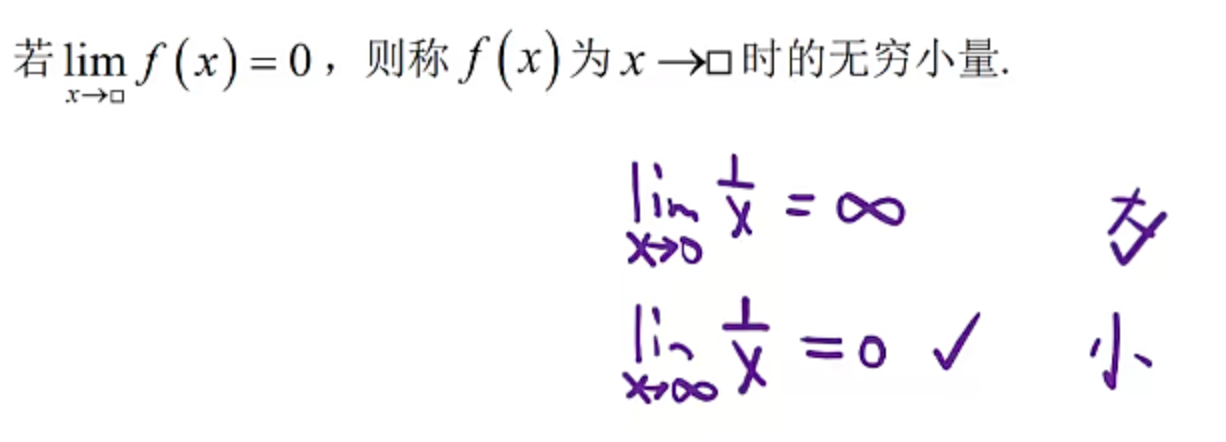 若 lim_{x→□} f(x) = 0，则称 f(x) 为 x→□ 时的无穷小量.
lim_{x→0} 1/x = ∞ 大 ✓
lim_{x→∞} 1/x = 0 ✓ 小